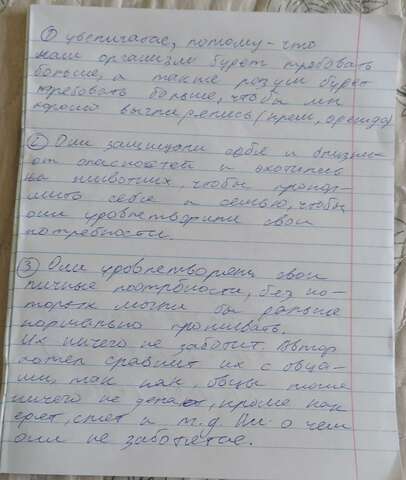 ① увеличатся, потому-что
наш организм будет требовать
больше, а также разум будет
требовать больше, чтобы мы
хорошо выглядели (крем, одежда)
② Они защищали себя и близких
от опасностей и охотились
на животных, чтобы прокор-
мить себя и семью, чтобы
они удовлетворили свои
потребности.
③ Они удовлетворяли свои
личные потребности, без ко-
торых могли бы дальше
нормально проживать.
Их ничего не заботит. Автор
хотел сравнит их с овца-
ми, так как, овцы тоже
ничего не делают, кроме как
едят, спят и т.д. Ни о чем
они не заботятся.